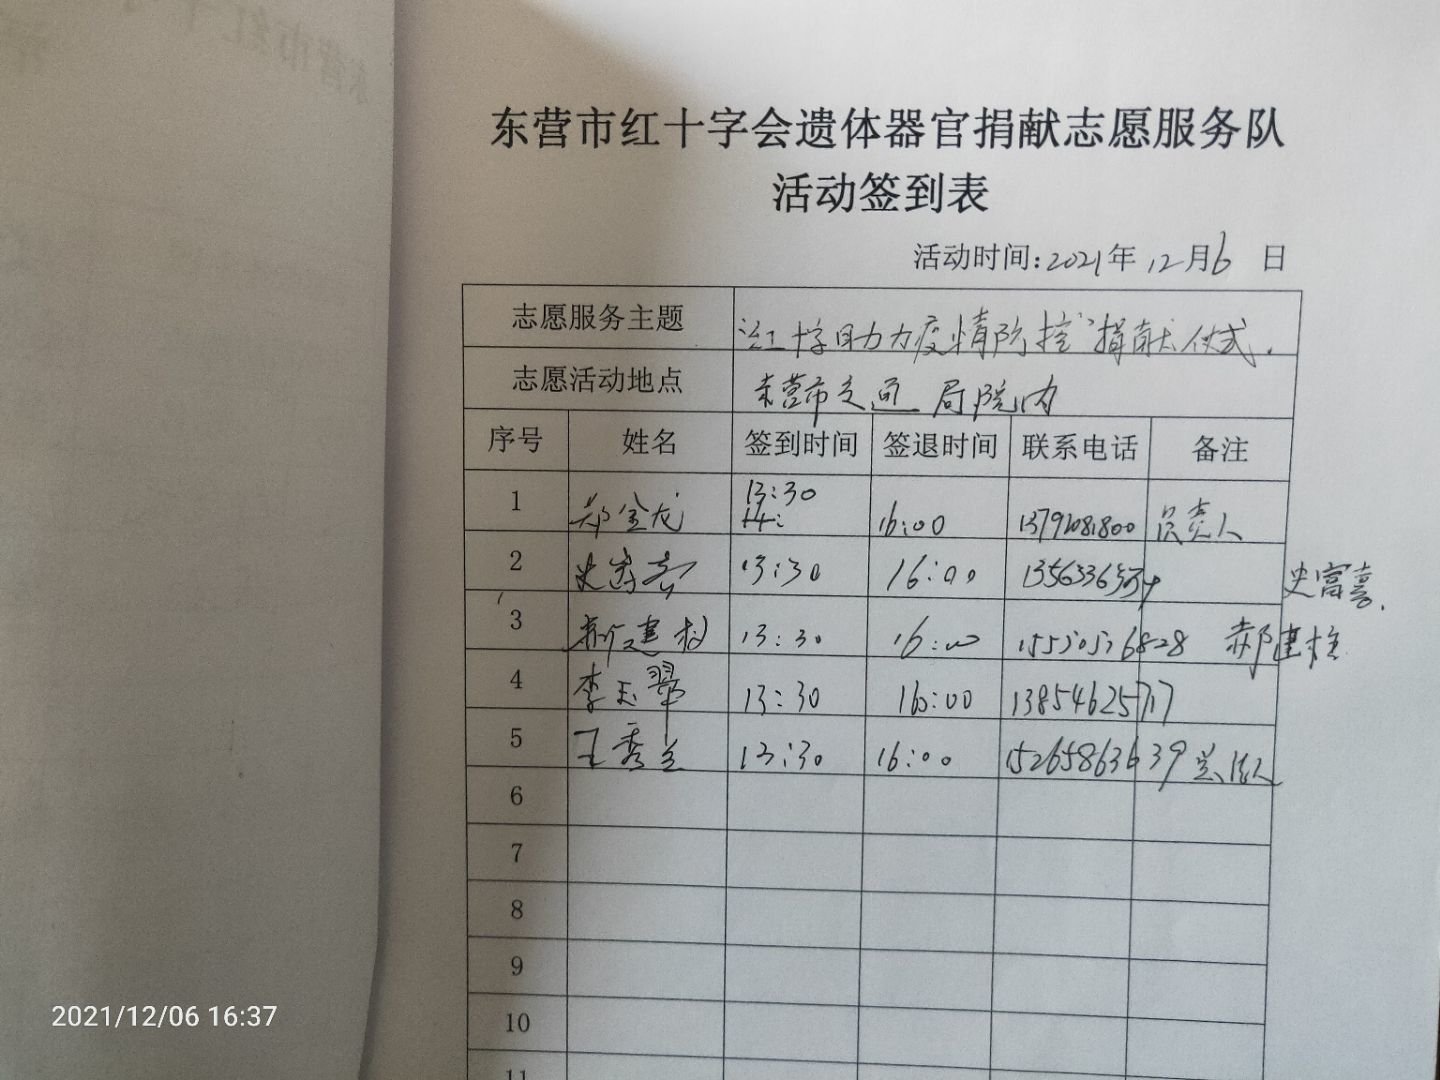 东营市红十字会遗体器官捐献志愿服务队
活动签到表
活动时间:2021年 12月6 日
志愿服务主题 “红十字助力疫情防控”捐献仪式.
志愿活动地点 东营市交通局院内
序号 姓名 签到时间 签退时间 联系电话 备注
1 郑金龙 13:30 16:00 负责人
2 史富喜 13:30 16:00 史富喜.
3 郝建柱 13:30 16:00 郝建柱
4 李玉翠 13:30 16:00 13854625717
5 王秀兰 13:30 16:00 15265863639
6
7
8
9
10
11
2021/12/06 16:37